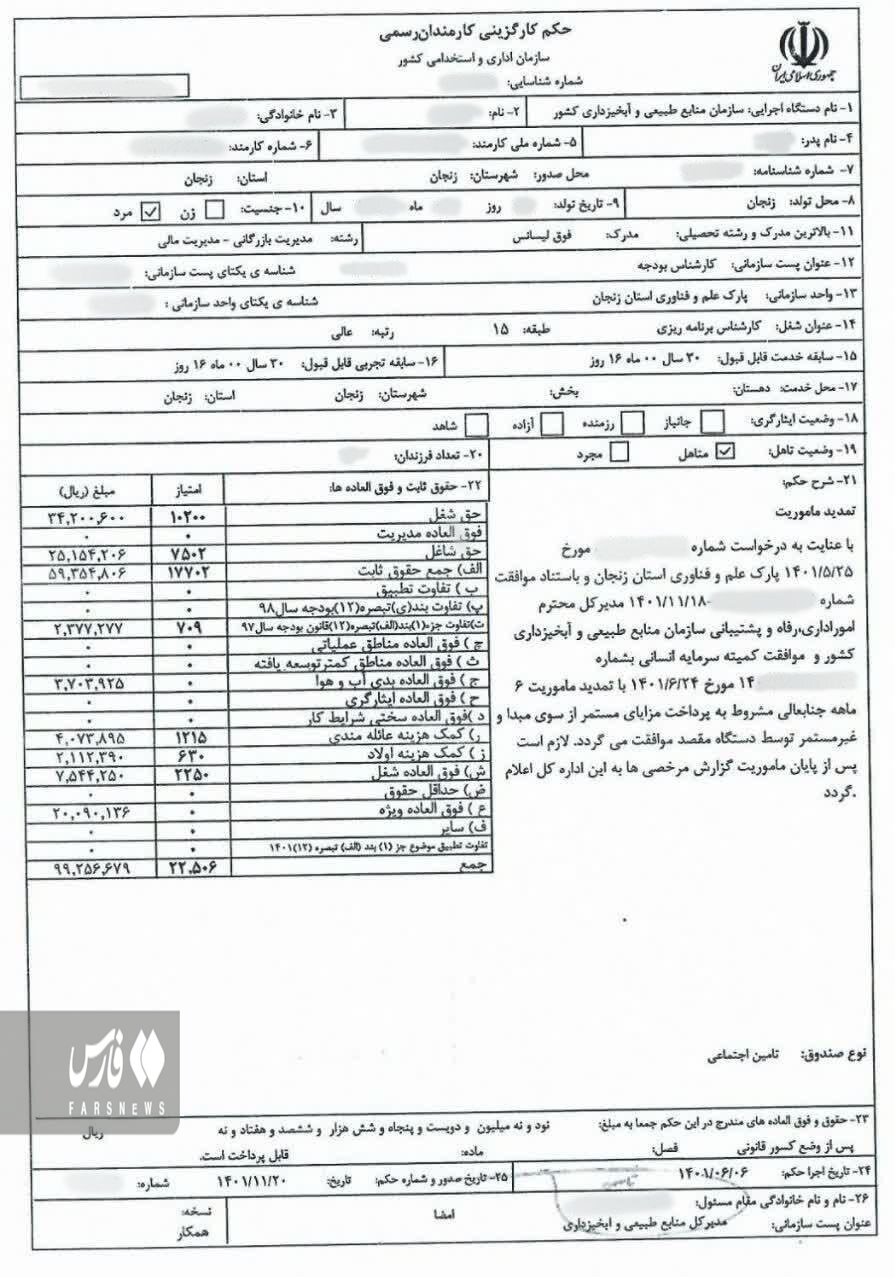 جمهوری اسلامی ایران
حکم کارگزینی کارمندان رسمی
سازمان اداری و استخدامی کشور
شماره شناسایی:
۱- نام دستگاه اجرایی: سازمان منابع طبیعی و آبخیزداری کشور ۲- نام: ۳- نام خانوادگی:
۴- نام پدر: ۵- شماره ملی کارمند: ۶- شماره کارمند:
۷- شماره شناسنامه: محل صدور: شهرستان: زنجان استان: زنجان
۸- محل تولد: زنجان ۹- تاریخ تولد: روز ماه سال ۱۰- جنسیت: زن مرد
۱۱- بالاترین مدرک و رشته تحصیلی: مدرک: فوق لیسانس رشته: مدیریت بازرگانی - مدیریت مالی
۱۲- عنوان پست سازمانی: کارشناس بودجه شناسه ی یکتای پست سازمانی:
۱۳- واحد سازمانی: پارک علم و فناوری استان زنجان شناسه ی یکتای واحد سازمانی :
۱۴- عنوان شغل: کارشناس برنامه ریزی طبقه: ۱۵ رتبه: عالی
۱۵- سابقه خدمت قابل قبول: ۳۰ سال ۰۰ ماه ۱۶ روز ۱۶- سابقه تجربی قابل قبول: ۳۰ سال ۰۰ ماه ۱۶ روز
۱۷- محل خدمت: دهستان: بخش: شهرستان: زنجان استان: زنجان
۱۸- وضعیت ایثارگری: جانباز رزمنده آزاده شاهد
۱۹- وضعیت تاهل: متاهل مجرد ۲۰- تعداد فرزندان:
۲۱- شرح حکم:
تمدید ماموریت
با عنایت به درخواست شماره مورخ
۱۴۰۱/۵/۲۵ پارک علم و فناوری استان زنجان و باستناد موافقت
شماره -۱۴۰۱/۱۱/۱۸ مدیرکل محترم
اموراداری،رفاه و پشتیبانی سازمان منابع طبیعی و آبخیزداری
کشور و موافقت کمیته سرمایه انسانی بشماره
۱۴ مورخ ۱۴۰۱/۶/۲۴ با تمدید ماموریت ۶
ماهه جنابعالی مشروط به پرداخت مزایای مستمر از سوی مبدا و
غیرمستمر توسط دستگاه مقصد موافقت می گردد. لازم است
پس از پایان ماموریت گزارش مرخصی ها به این اداره کل اعلام
گردد.
۲۲- حقوق ثابت و فوق العاده ها: امتیاز مبلغ (ریال)
حق شغل ۱۰۲۰۰ ۳۴,۲۰۰,۶۰۰
فوق العاده مدیریت ۰ ۰
حق شاغل ۷۵۰۲ ۲۵,۱۵۴,۲۰۶
الف) جمع حقوق ثابت ۱۷۷۰۲ ۵۹,۳۵۴,۸۰۶
ب ) تفاوت تطبیق ۰ ۰
پ) تفاوت بند(ی)تبصره(۱۲)بودجه سال۹۸ ۰ ۰
ت)تفاوت جزء(۱)بند(الف)تبصره(۱۲)قانون بودجه سال۹۷ ۷۰۹ ۲,۳۷۷,۲۷۷
ج ) فوق العاده مناطق عملیاتی ۰ ۰
ث ) فوق العاده مناطق کمترتوسعه یافته ۰ ۰
چ ) فوق العاده بدی آب و هوا ۰ ۳,۷۰۳,۹۲۵
ح ) فوق العاده ایثارگری ۰ ۰
د )فوق العاده سختی شرایط کار ۰ ۰
ر) کمک هزینه عائله مندی ۱۲۱۵ ۴,۰۷۳,۸۹۵
ز ) کمک هزینه اولاد ۶۳۰ ۲,۱۱۲,۳۹۰
ش) فوق العاده شغل ۲۲۵۰ ۷,۵۴۴,۲۵۰
ض) حداقل حقوق ۰ ۰
ع ) فوق العاده ویژه ۰ ۲۰,۰۹۰,۱۳۶
ف) سایر ۰ ۰
تفاوت تطبیق موضوع جز (۱) بند (الف) تبصره (۱۲)۱۴۰۱ ۰ ۰
جمع ۲۲,۵۰۶ ۹۹,۲۵۶,۶۷۹
نوع صندوق: تامین اجتماعی
فارس
FARSNEWS
۲۳- حقوق و فوق العاده های مندرج در این حکم جمعا به مبلغ: نود و نه میلیون و دویست و پنجاه و شش هزار و ششصد و هفتاد و نه ریال
پس از وضع کسور قانونی فصل: ماده: قابل پرداخت است.
۲۴- تاریخ اجرا حکم: ۱۴۰۱/۰۶/۰۶ ۲۵- تاریخ صدور و شماره حکم: تاریخ: ۱۴۰۱/۱۱/۲۰ شماره:
۲۶- نام و نام خانوادگی مقام مسئول: امضا نسخه:
عنوان پست سازمانی: مدیرکل منابع طبیعی و ابخیزداری همکار